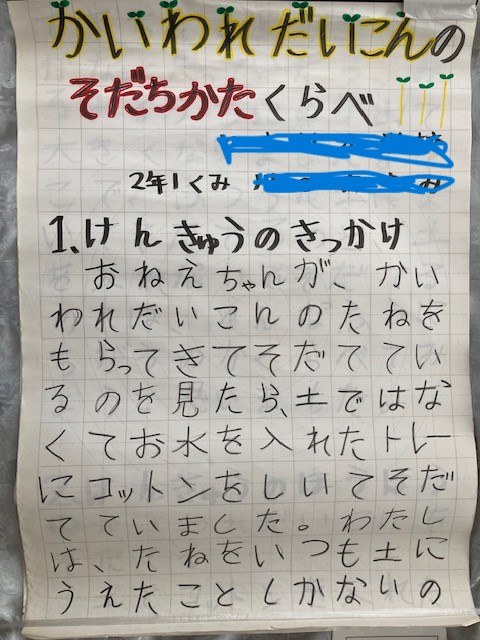 かいわれだいこんの
そだちかたくらべ
2年1くみ
1、けんきゅうのきっかけ
おねえちゃんが、かい
われだいこんのたねを
もらってきてそだててい
るのを見たら、土ではな
くてお水を入れたトレー
にコットンをしいてそだ
てていました。わたし
は、たねをいつも土に
うえたことしかないの